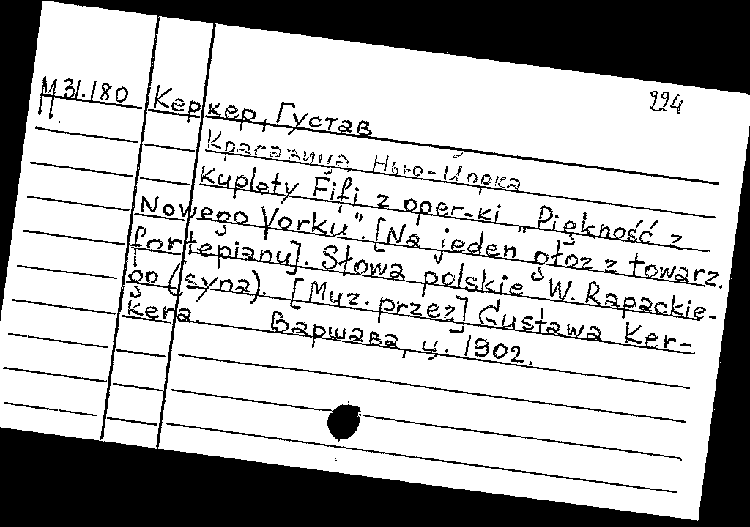 М 31.180 Керкер, Густав 994
Красавица Нью-Йорка
Kuplety Fifi z oper-ki „Piękność z
Nowego Yorku". [Na jeden głoz z towarz.
fortepianu]. Słowa polskie W. Rapackie-
go (syna). [Muz. przez] Gustawa Ker-
kera. Варшава, ц. 1902.